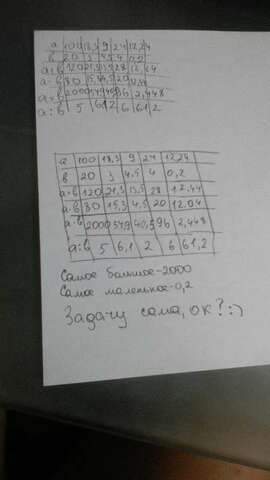 a 100 18,3 9 24 12,24
b 20 3 4,5 4 0,2
a+b 120 21,3 13,5 28 12,44
a-b 80 15,3 4,5 20 12,04
a·b 2000 54,9 40,5 96 2,448
a:b 5 6,1 2 6 61,2
a 100 18,3 9 24 12,24
b 20 3 4,5 4 0,2
a+b 120 21,3 13,5 28 12.44
a-b 80 15,3 4,5 20 12.04
a·b 2000 54,9 40,5 96 2,448
a:b 5 6,1 2 6 61,2
Самое большое-2000
Самое маленькое-0,2
Задачу сама, ок?:)